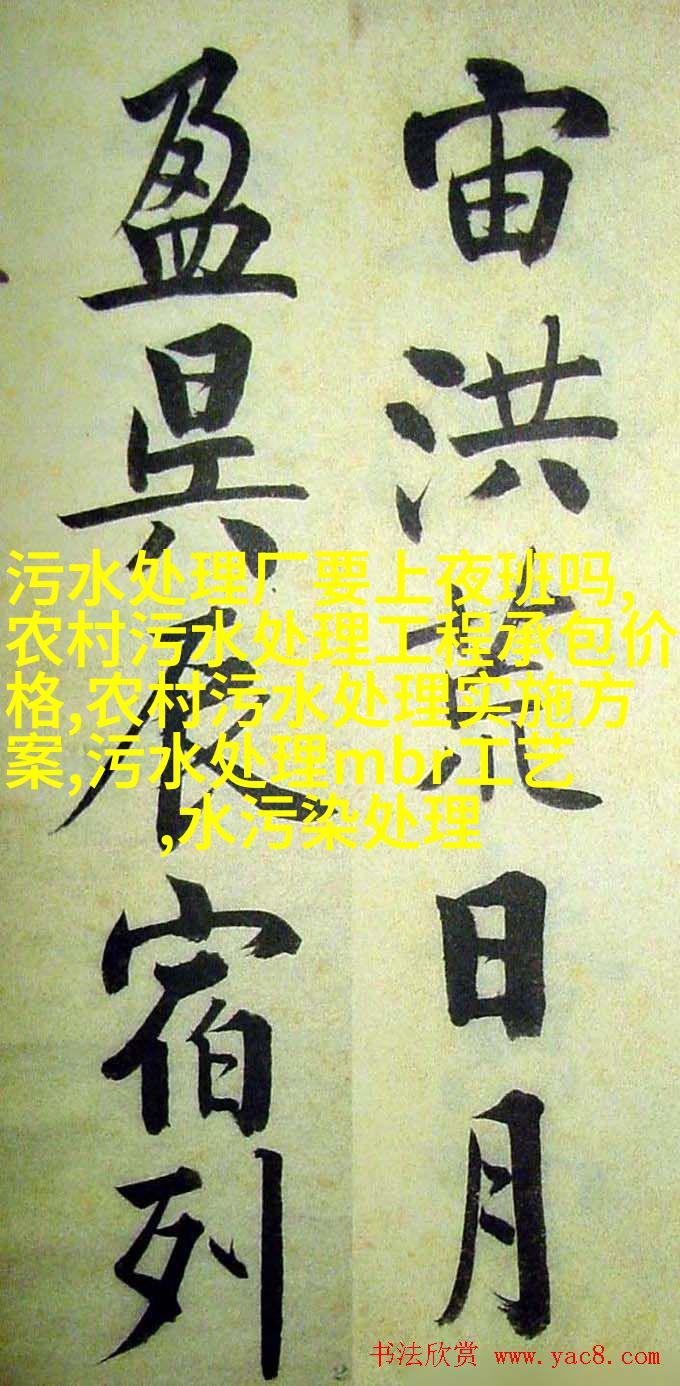 宙洪荒日月
盈昃辰宿列
污水处理厂要上夜班吗,
农村污水处理工程承包价
格,农村污水处理实施方
案,污水处理mbr工艺
,水污染处理
书法欣赏 www.yac8.com